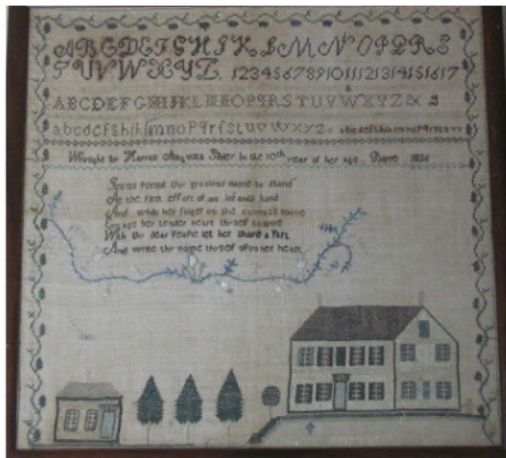 ABCDEFGHIKLMNOPQRS
TUVWXYZ. 1234567891011121314151617
ABCDEFGHIJKLMNOPQRSTUVWXYZ&
abcdefghiklmnopqrstuvwxyz
Wrought by Harriet Augusta in the 10th year of her age. 1824
Jesus Permit thy gracious name to stand
As the first effort of an infants hand
And while her finger on the move
Engage her tender heart thyself to love
With thy dear People let her share a Part
And write thy name thyself upon her heart